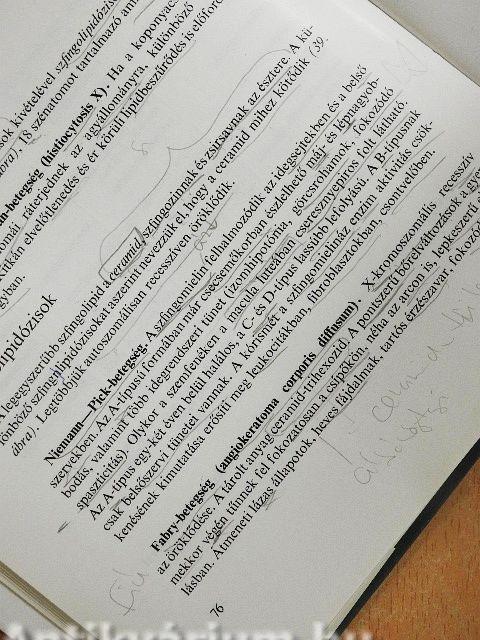 ak kivételével szfingolipidózis
ábra). 18 szénatomot tartalmazó
betegség (histiocytosis X). Ha a koponyac
ráterjednek az agyállományra, különböző
elvelőtlenedés és ér körüli lipidbeszűrődés is előfor
gyban.
lipidózisok
A legegyszerűbb szfingolipid a ceramid, szfingozinnak és zsírsavnak az észtere. A kü-
lönböző szfingolipidózisokat aszerint nevezzük el, hogy a ceramid mihez kötődik (39.
ábra). Legtöbbjük autoszomálisan recesszíven öröklődik.
Niemann—Pick-betegség. A szfingomielin felhalmozódik az idegsejtekben és a belső
szervekben. Az A-típusú formában már csecsemőkorban észlelhető máj- és lépnagyob-
bodás, valamint több idegrendszeri tünet (izomhipotónia, görcsrohamok, fokozódó
spaszticitás). Olykor a szemfenéken a macula lutea cseresznyepiros folt látható.
Az A-típus egy-két éven belül halálos, a C- és D-típus lassúbb lefolyású. A B-típusnak
csak belsőszervi tünetei vannak. A kórismét a szfingomielináz enzim aktivitás csök-
kenésének kimutatása erősíti meg leukocitákban, fibroblasztokban, csontvelőben.
Fabry-betegség (angiokeratoma corporis diffusum). X-kromoszomális recesszív
az öröklődése. A tárolt anyag ceramid-trihexozid. A pontszerű bőrelváltozások a gyer-
mekkor végén tűnnek fel fokozatosan a csípőkön, néha az arcon is, lepkeszerű
lásban. Átmeneti lázas állapotok, heves fájdalmak, tartós érzészavar, fokozó
76
Antikvárium.hu